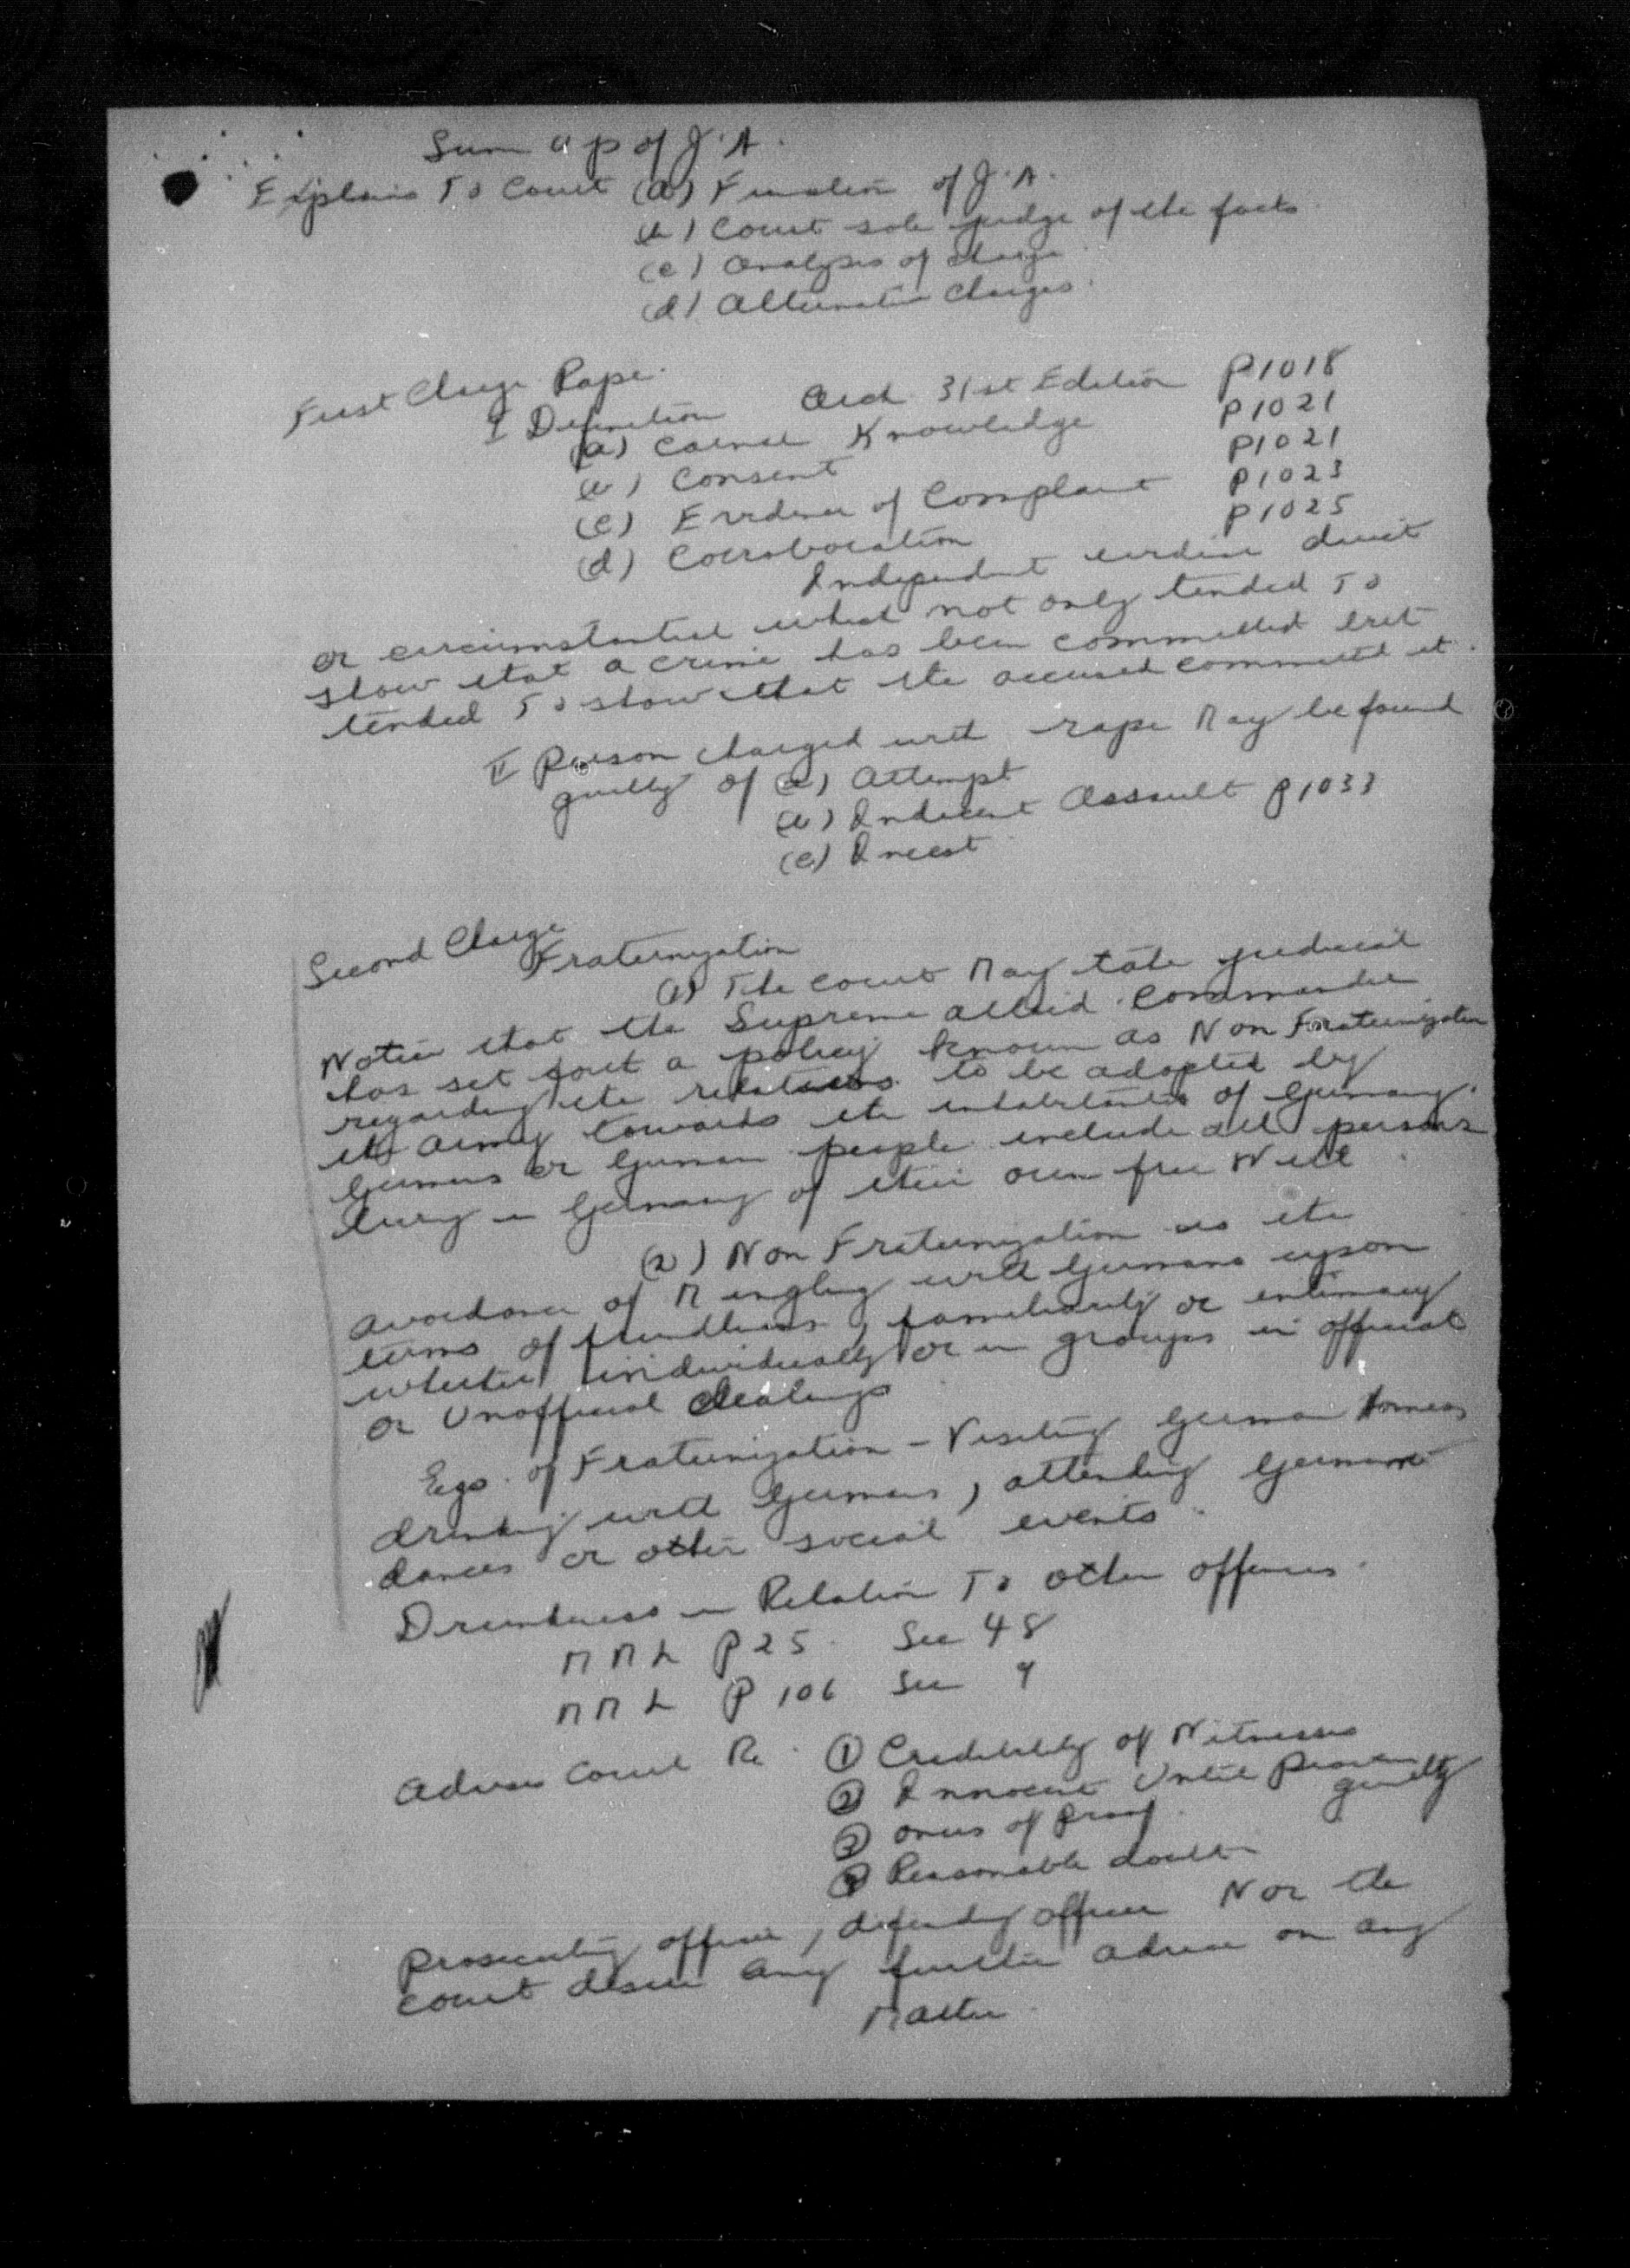 Sum up of J.A.
Explains To Court (a) Function of J.A.
(b) Court sole judge of the facts
(c) Analysis of charge
(d) Alternative Charges.
First Charge Rape.
I Definition Arch 31st Edition P1018
(a) Carnal Knowledge P1021
(b) Consent P1021
(c) Evidence of Complaint P1023
(d) Corroboration P1025
Independent evidence direct
or circumstantial which not only tended To
show that a crime has been committed but
tended To show that the accused committed it.
II Person charged with rape May be found
guilty of (a) Attempt
(b) Indecent Assault P1033
(c) Incest
Second Charge
Fraternization
(1) The court May take judicial
Notice that the Supreme Allied Commander
has set out a policy known as Non Fraternization
regarding the relations to be adopted by
the army towards the inhabitants of Germany.
Germans or German people include all persons
living in Germany of their own free Will.
(2) Non Fraternization is the
avoidance of Mingling with Germans upon
terms of friendliness, familiarity or intimacy
whether individually or in groups in official
or Unofficial dealings
Egs. of Fraternization - Visiting German Homes
drinking with Germans, attending German
dances or other social events.
Drunkeness in Relation To other offences.
MML P25. Sec 48
MML P 106 Sec 9
Advises Court Re. ① Credibility of Witnesses
② Innocent Until proven
guilty
③ Onus of proof.
④ Reasonable doubt
Prosecuting officer, defending officer Nor the
court desire any further advice on any
Matter.